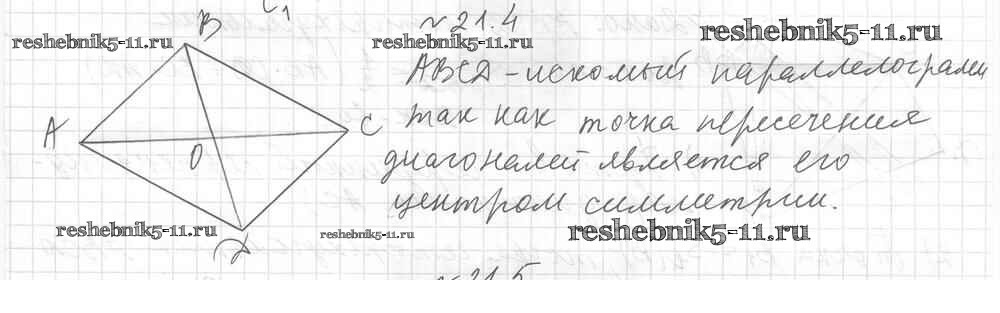 C₁
№ 21.4
reshebnik5-11.ru reshebnik5-11.ru reshebnik5-11.ru
B
ABCD - искомый параллелограмм
A C так как точка пересечения
O
диагоналей является его
центром симметрии.
reshebnik5-11.ru reshebnik5-11.ru reshebnik5-11.ru
D
№ 21.5